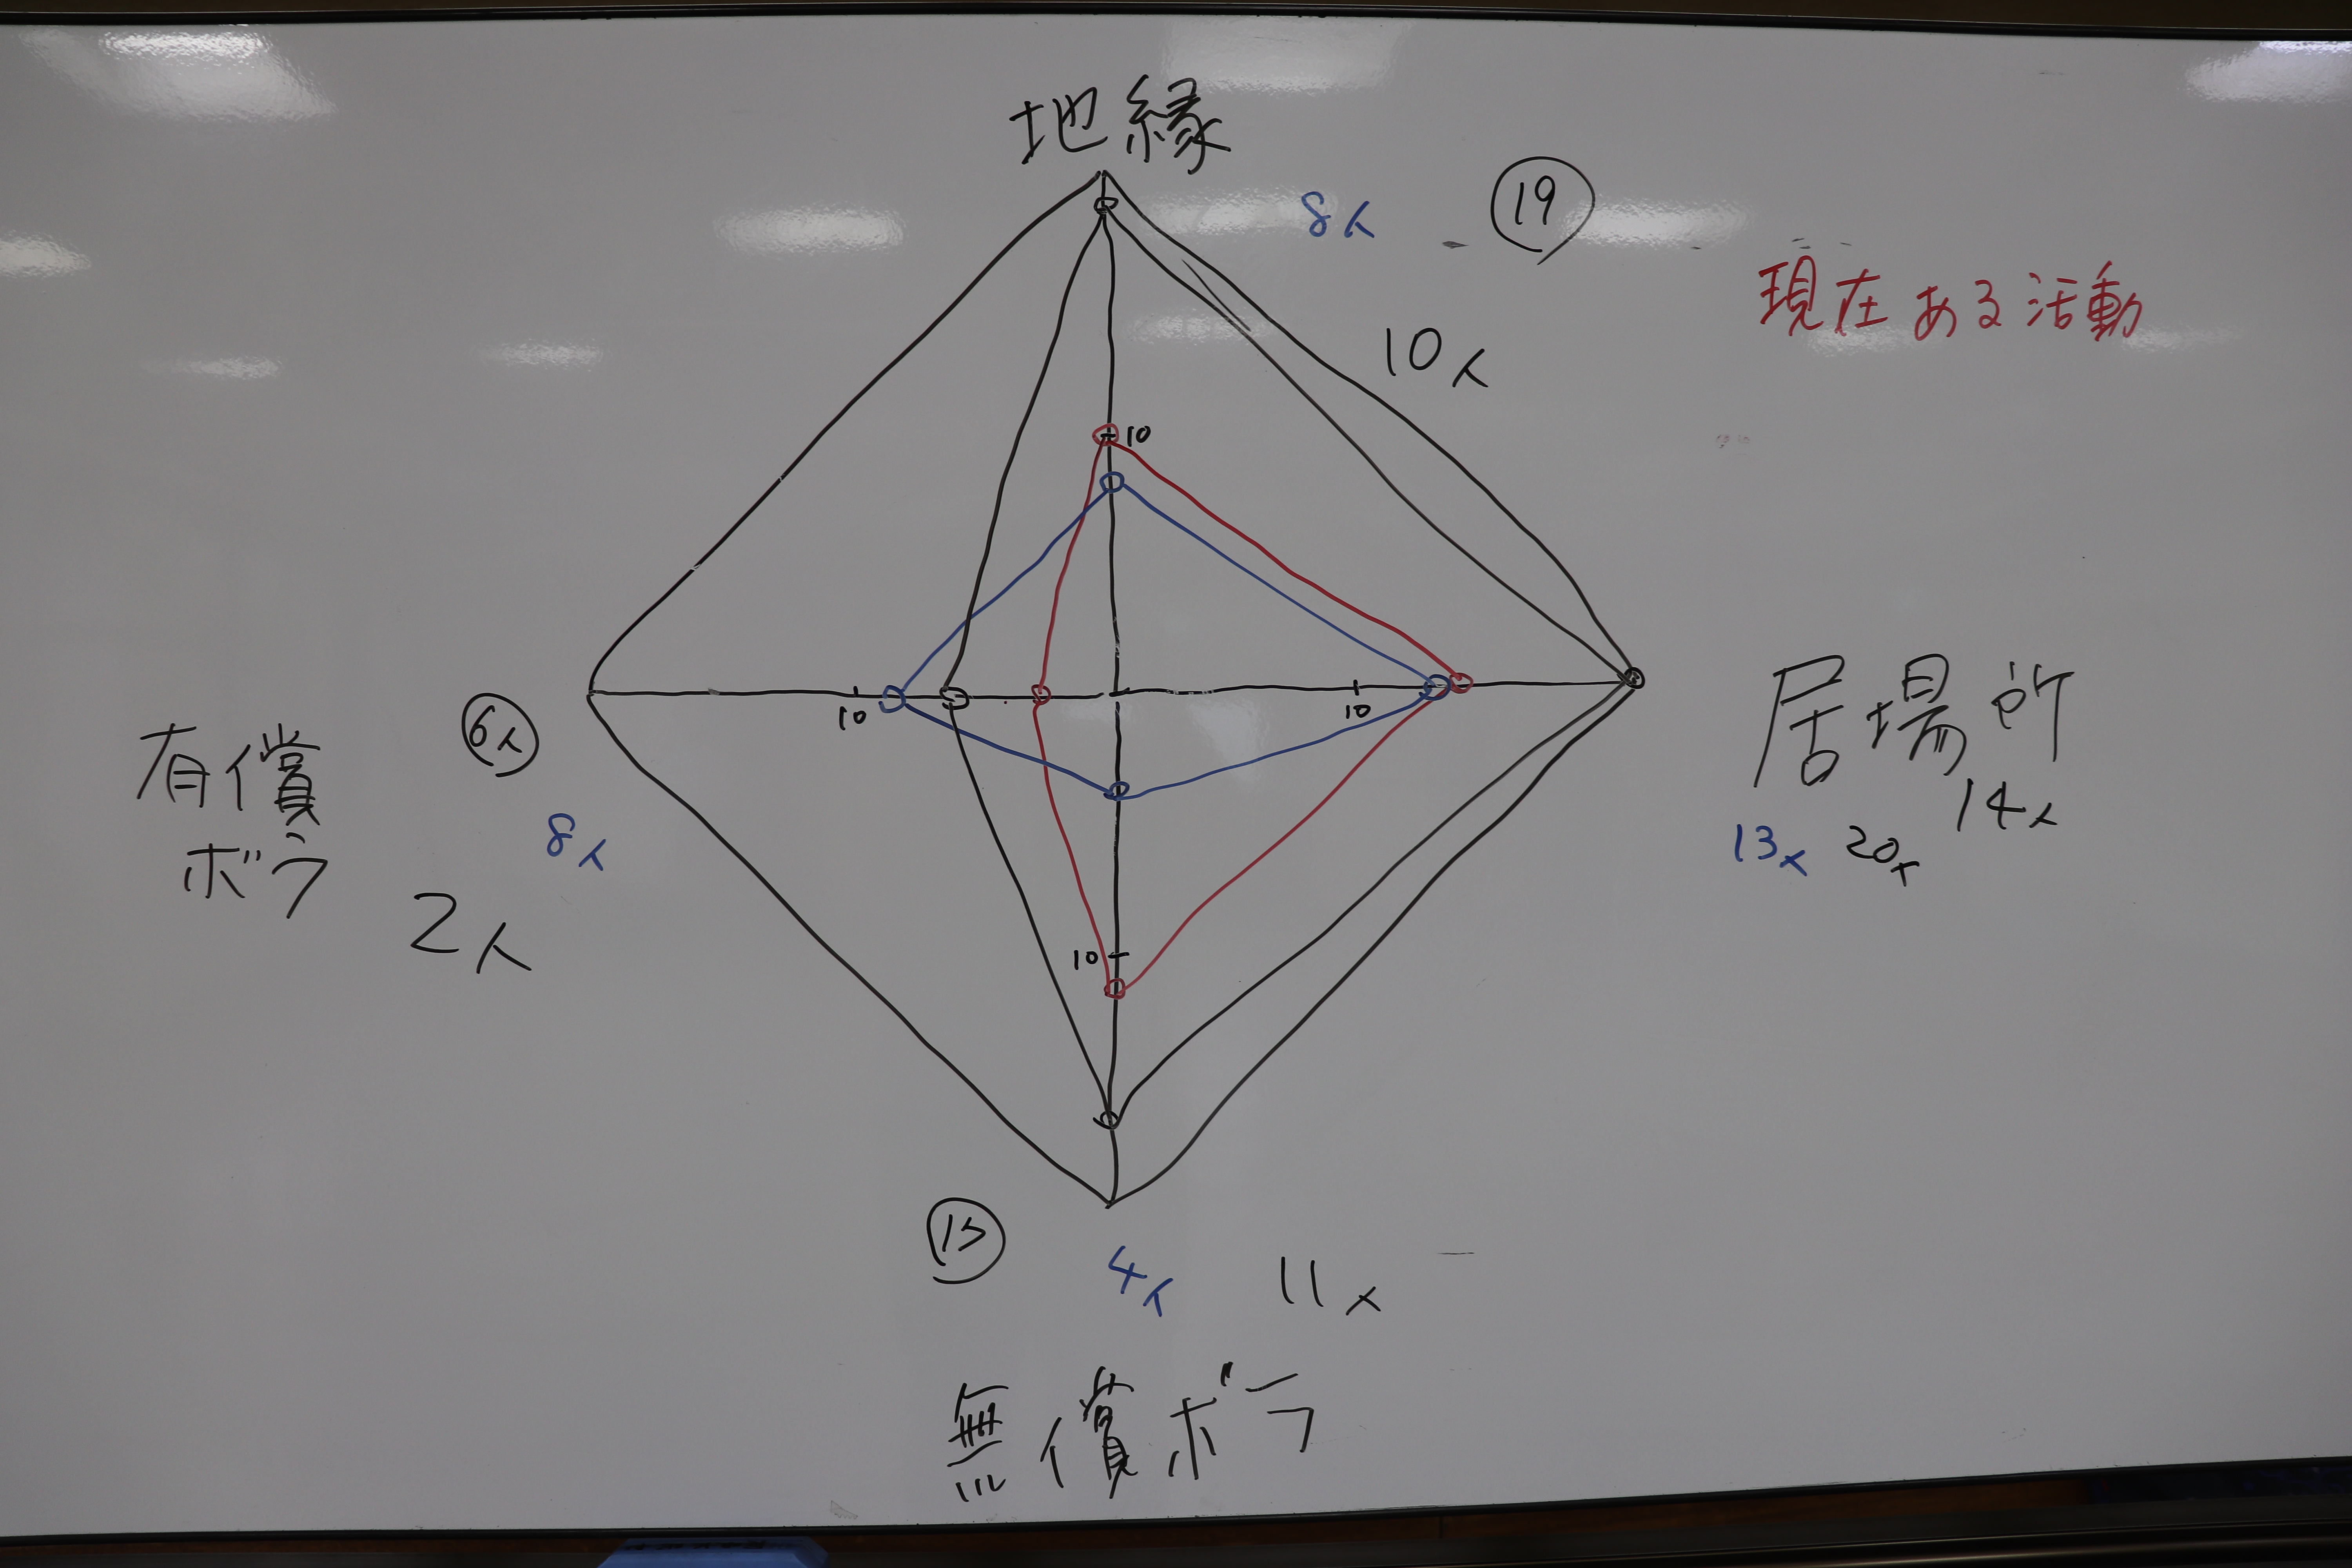 地縁
8人
19
現在ある活動
10人
10
10
10
6人
有償
ボラ
8人
2人
居場所
14人
13人 20人
10
15
4人
11人
無償ボラ